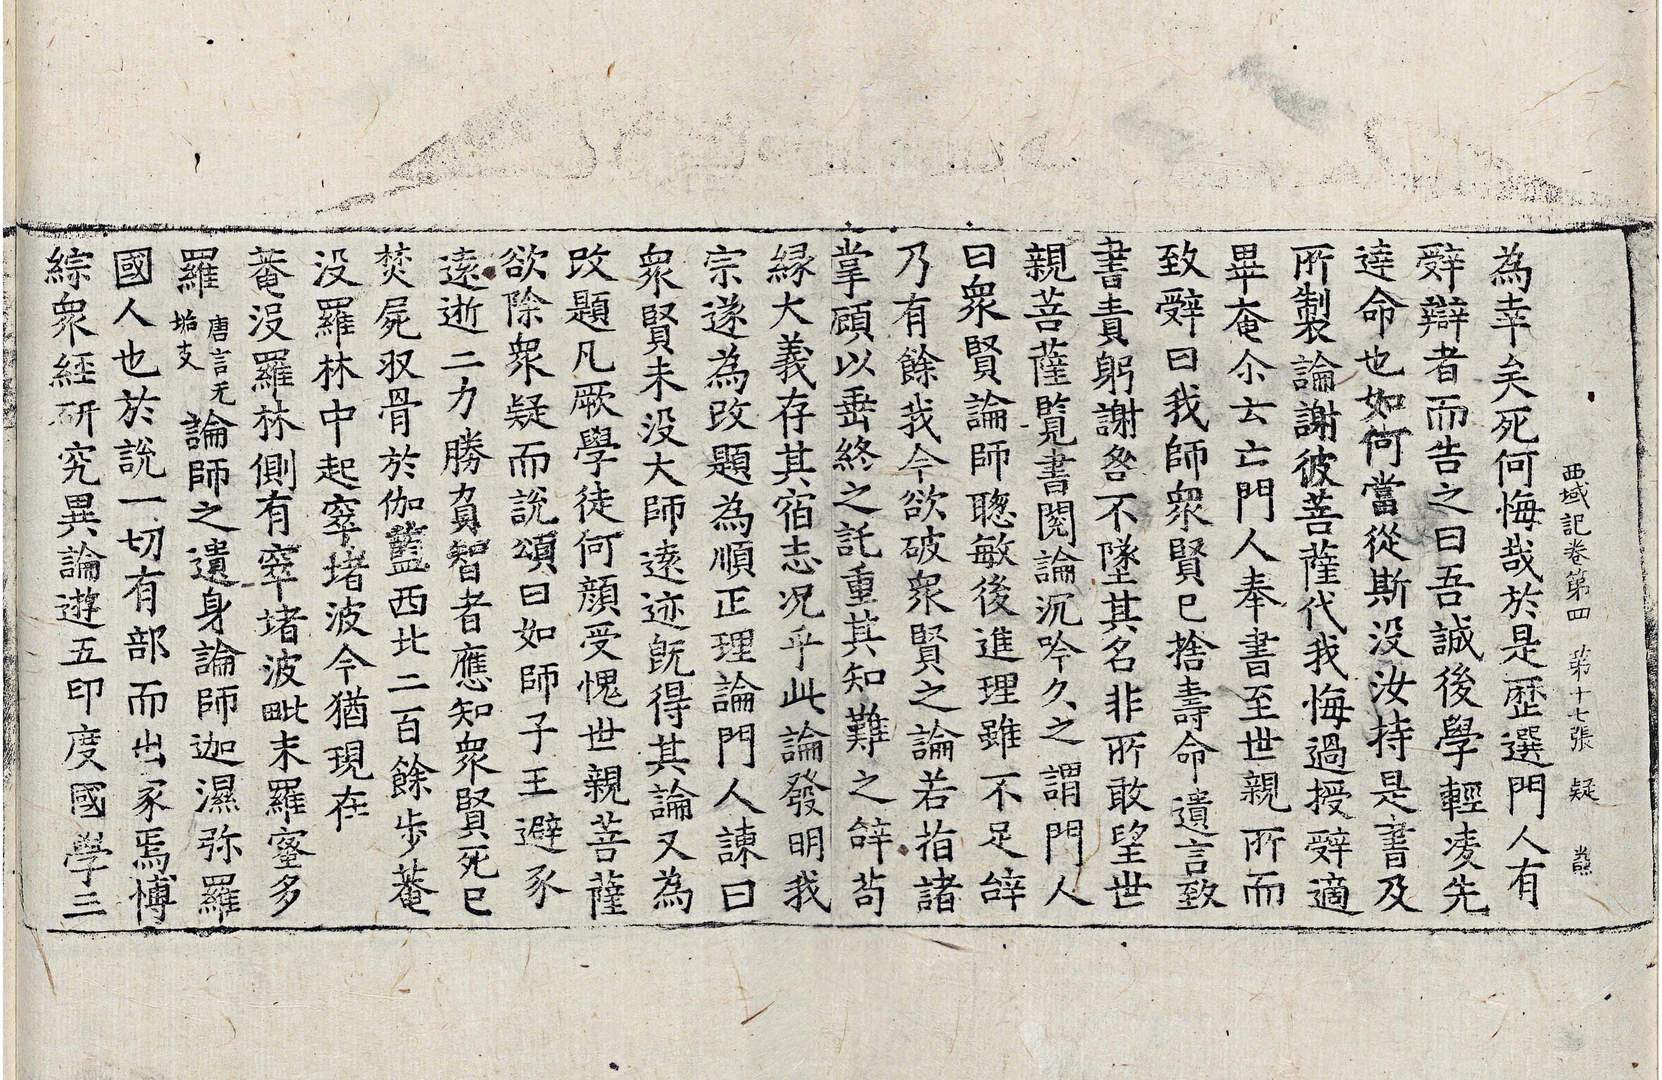 西域記卷第四 第十七張 疑
為幸矣死何悔哉於是歷選門人有
辭辯者而告之曰吾誠後學輕凌先
達命也如何當從斯没汝持是書及
所製論謝彼菩薩代我悔過授辭適
畢奄尒云亡門人奉書至世親所而
致辭曰我師衆賢已捨壽命遺言致
書責躬謝咎不墜其名非所敢望世
親菩薩覽書閱論沉吟久之謂門人
曰衆賢論師聦敏後進理雖不足辝
乃有餘我今欲破衆賢之論若指諸
掌顧以垂終之託重其知難之辝苟
緣大義存其宿志况乎此論發明我
宗遂為改題為順正理論門人諫曰
衆賢未没大師遠迹旣得其論又為
改題凡厥學徒何顔受愧世親菩薩
欲除衆疑而說頌曰如師子王避豕
遠逝二力勝負智者應知衆賢死已
焚屍収骨於伽藍西北二百餘步菴
没羅林中起窣堵波今猶現在
菴没羅林側有窣堵波毗末羅蜜多
羅唐言无垢友論師之遺身論師迦濕弥羅
國人也於說一切有部而出家焉博
綜衆經研究異論遊五印度國學三